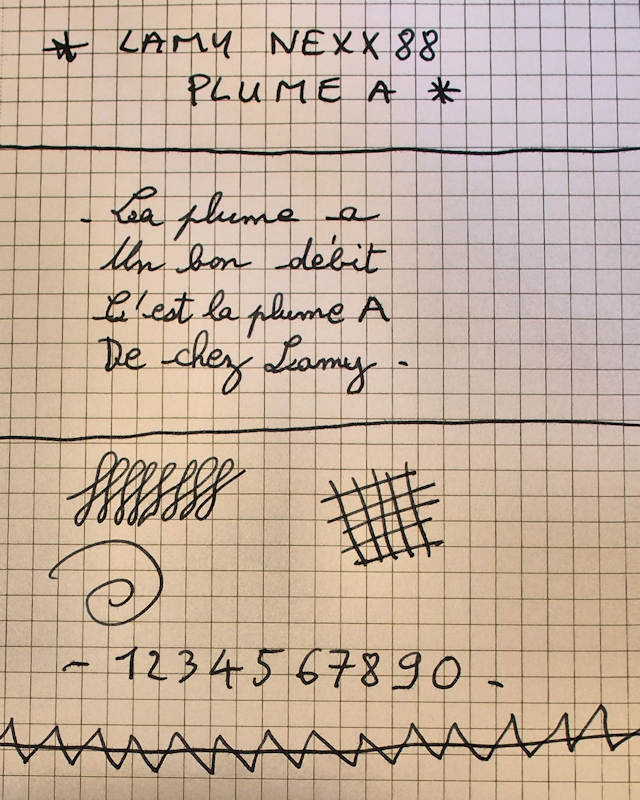 * LAMY NEXX 88
PLUME A *
- La plume a
Un bon débit
C'est la plume A
De chez Lamy -
- 1234567890 -